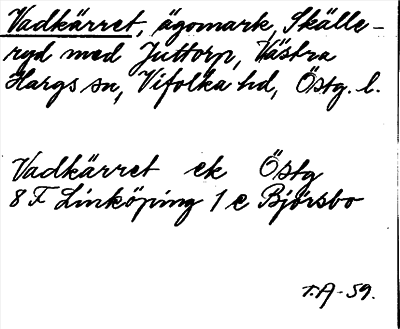 Vadkärret, ägomark, Skälle-
ryd med Juttorp, Västra
Hargs sn, Vifolka hd, Östg. l.
Vadkärret ek Östg
8 F Linköping 1 e Björsbo
T.A-59.